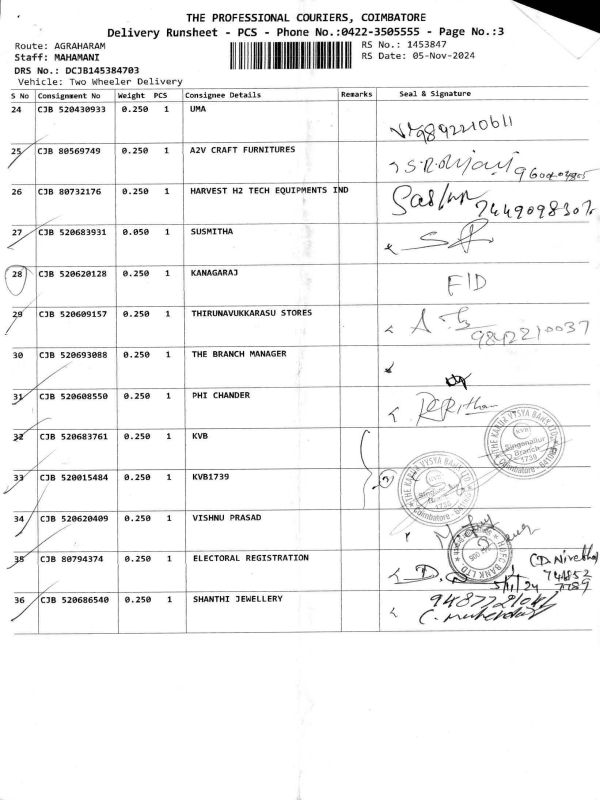 THE PROFESSIONAL COURIERS, COIMBATORE
Delivery Runsheet - PCS - Phone No.:0422-3505555 - Page No.:3
Route: AGRAHARAM
RS No.: 1453847
Staff: MAHAMANI
RS Date: 05-Nov-2024
DRS No.: DCJB145384703
Vehicle: Two Wheeler Delivery
S No Consignment No Weight PCS Consignee Details Remarks Seal & Signature
24 CJB 520430933 0.250 1 UMA
9892210611
25 CJB 80569749 0.250 1 A2V CRAFT FURNITURES
26 CJB 80732176 0.250 1 HARVEST H2 TECH EQUIPMENTS IND
27 CJB 520683931 0.050 1 SUSMITHA
28 CJB 520620128 0.250 1 KANAGARAJ
F/D
29 CJB 520609157 0.250 1 THIRUNAVUKKARASU STORES
9842210037
30 CJB 520693088 0.250 1 THE BRANCH MANAGER
31 CJB 520608550 0.250 1 PHI CHANDER
32 CJB 520683761 0.250 1 KVB
THE KARUR VYSYA BANK LTD
KVB
Singanallur
Branch
1739
Coimbatore
33 CJB 520015484 0.250 1 KVB1739
THE KARUR VYSYA BANK LTD
Coimbatore
34 CJB 520620409 0.250 1 VISHNU PRASAD
35 CJB 80794374 0.250 1 ELECTORAL REGISTRATION
BANK LTD
5/11/24
36 CJB 520686540 0.250 1 SHANTHI JEWELLERY